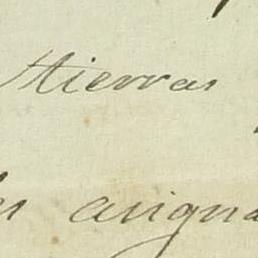 tierras
asigna